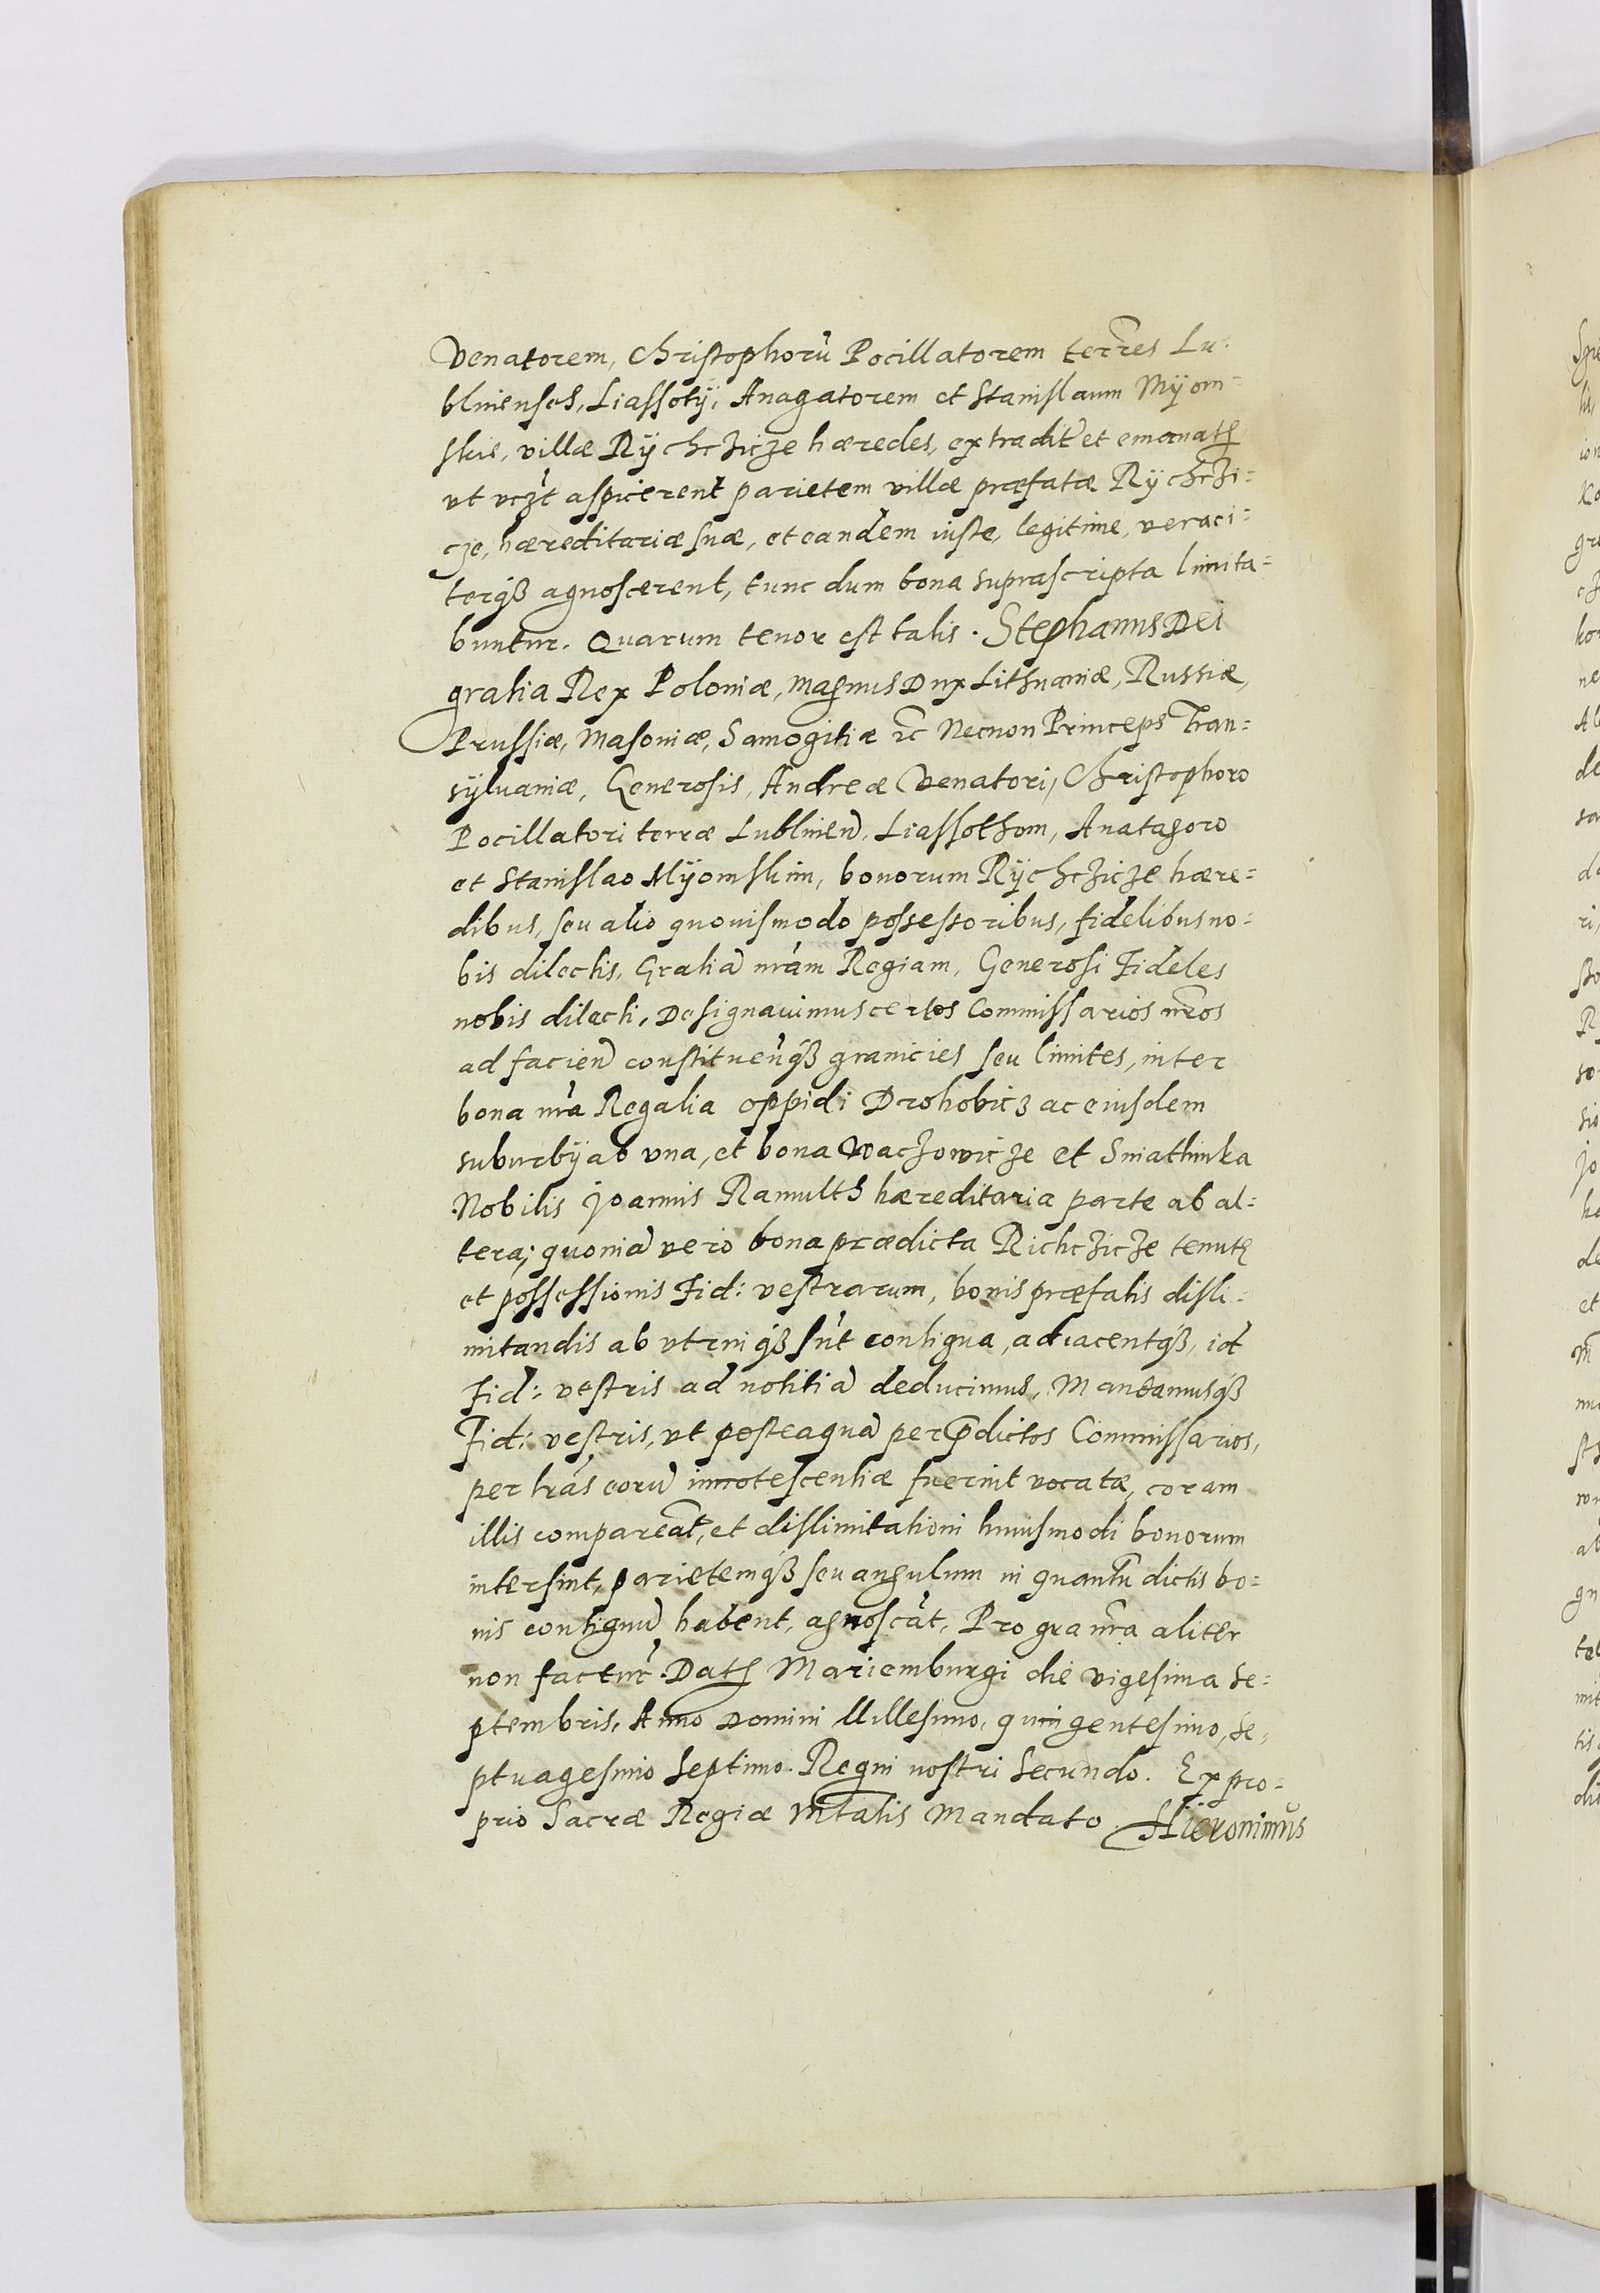 Venatorem, Christophorū Pocillatorem terr̃es Lu-
blinenses, Liassotÿ, Anagatorem et Stanislaum Mÿom=
skie, villæ Rÿchczicze hæredes, extradit̃ et emanatę
vt vcz̃t aspicerent parietem villæ præfatæ Rÿchczi=
cze, hæreditariæ suæ, et eandem iuste, legitime, veraci=
terq́ꝫ agnoscerent, tunc dum bona suprascripta limita=
buntur. Quarum tenor est talis. Stephanus Dei
gratia Rex Poloniæ, Magnus Dux Lithuaniæ, Russiæ,
Prussiæ, Masoniæ, Samogitiæ ꝛc̃ Necnon Princeps Tran=
sÿluaniæ, Generosis, Andreæ Venatori, Christophoro
Pocillatori terræ Lublineñ, Liassothom, Anatagoro
et Stanislao Mÿomskim, bonorum Rÿchczicze hære=
dibus, seu alio quouismodo possessoribus, fidelibus no=
bis dilectis, Gratiā nr̃am Regiam, Generosi Fideles
nobis dilecti, Designauimus certos Commissarios nr̃os
ad facieñ constitueñq́ꝫ granicies seu limites, inter
bona nr̃a Regalia oppidi Drohobicz ac eiusdem
suburbÿ ab vna, et bona Waczowicze et Sniathinka
Nobilis Joannis Ramulth hæreditaria parte ab al=
tera; quoniā vero bona prædicta Richczicze tenutę
et possessionis Fid: vestrarum, bonis præfatis disli=
mitandis ab vtrinq́ꝫ sūt contigua, adiacentq́ꝫ, id
Fid: vestris ad notitiā deducimus, Mandamusq́ꝫ
Fid: vestris, vt posteaquā per p̃dictos Commissarios,
per lr̃as eorū innotescentiæ fuerint vocatæ, coram
illis compareāt, et dislimitationi huiusmodi bonorum
intersint, parietemq́ꝫ seu angulum in quantū dictis bo=
nis contiguū habent, agnoscāt, Pro gra nr̃a aliter
non factur̃. Datę Mariemburgi die vigesima Se=
ptembris, Anno Domini Millesimo, quingentesimo, Se=
ptuagesimo Septimo. Regni nostri Secundo. Ex pro=
prio Sacræ Regiæ Mtatis Mandato. Hieronimus